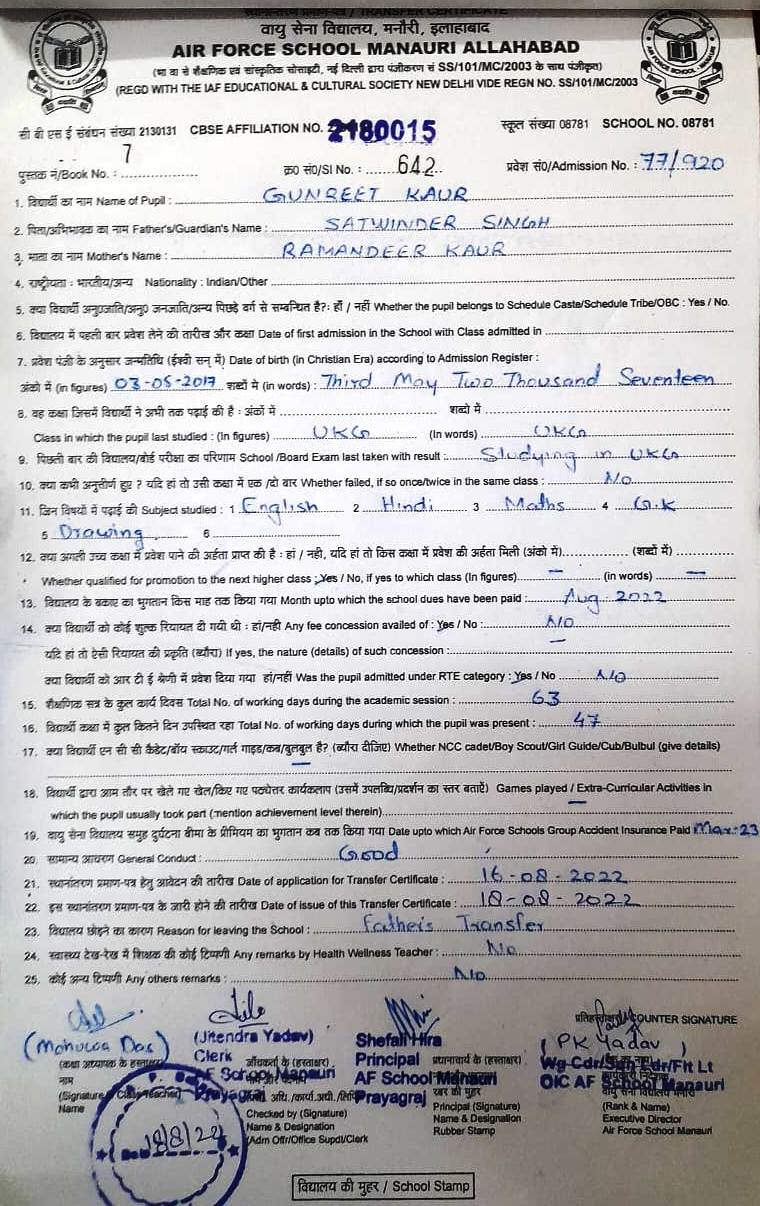 स्थानान्तरण प्रमाण-पत्र / TRANSFER CERTIFICATE
वायु सेना विद्यालय, मनौरी, इलाहाबाद
AIR FORCE SCHOOL MANAURI ALLAHABAD
(भा वा से शैक्षणिक एवं सांस्कृतिक सोसाइटी, नई दिल्ली द्वारा पंजीकरण सं SS/101/MC/2003 के साथ पंजीकृत)
(REGD WITH THE IAF EDUCATIONAL & CULTURAL SOCIETY NEW DELHI VIDE REGN NO. SS/101/MC/2003
सी बी एस ई संबंधन संख्या 2130131 CBSE AFFILIATION NO. 2180015 स्कूल संख्या 08781 SCHOOL NO. 08781
पुस्तक नं/Book No. : 7 क्र0 सं0/SI No. : 642 प्रवेश सं0/Admission No. : 77/920
1. विद्यार्थी का नाम Name of Pupil : GUNREET KAUR
2. पिता/अभिभावक का नाम Father's/Guardian's Name : SATWINDER SINGH
3. माता का नाम Mother's Name : RAMANDEER KAUR
4. राष्ट्रीयता : भारतीय/अन्य Nationality : Indian/Other
5. क्या विद्यार्थी अनु0जाति/अनु0 जनजाति/अन्य पिछड़े वर्ग से सम्बन्धित है?: हाँ / नहीं Whether the pupil belongs to Schedule Caste/Schedule Tribe/OBC : Yes / No.
6. विद्यालय में पहली बार प्रवेश लेने की तारीख और कक्षा Date of first admission in the School with Class admitted in
7. प्रवेश पंजी के अनुसार जन्मतिथि (ईश्वी सन् में) Date of birth (in Christian Era) according to Admission Register :
अंको में (in figures) 03-05-2017 शब्दों में (in words) : Third May Two Thousand Seventeen
8. वह कक्षा जिसमें विद्यार्थी ने अभी तक पढ़ाई की है : अंकों में शब्दों में
Class in which the pupil last studied : (In figures) UKG (In words) UKG
9. पिछली बार की विद्यालय/बोर्ड परीक्षा का परिणाम School /Board Exam last taken with result : Studying in UKG
10. क्या कभी अनुत्तीर्ण हुए ? यदि हां तो उसी कक्षा में एक /दो बार Whether failed, if so once/twice in the same class : No
11. जिन विषयों में पढ़ाई की Subject studied : 1 English 2 Hindi 3 Maths 4 G.K
5 Drawing 6
12. क्या अगली उच्च कक्षा में प्रवेश पाने की अर्हता प्राप्त की है : हां / नही, यदि हां तो किस कक्षा में प्रवेश की अर्हता मिली (अंको में) (शब्दों में)
Whether qualified for promotion to the next higher class : Yes / No, if yes to which class (In figures) — (in words) —
13. विद्यालय के बकाए का भुगतान किस माह तक किया गया Month upto which the school dues have been paid : Aug 2022
14. क्या विद्यार्थी को कोई शुल्क रियायत दी गयी थी : हां/नही Any fee concession availed of : Yes / No : N/o
यदि हां तो ऐसी रियायत की प्रकृति (ब्यौरा) If yes, the nature (details) of such concession : —
क्या विद्यार्थी को आर टी ई श्रेणी में प्रवेश दिया गया हां/नहीं Was the pupil admitted under RTE category : Yes / No N/o
15. शैक्षणिक सत्र के कुल कार्य दिवस Total No. of working days during the academic session : 63
16. विद्यार्थी कक्षा में कुल कितने दिन उपस्थित रहा Total No. of working days during which the pupil was present : 47
17. क्या विद्यार्थी एन सी सी कैडेट/बॉय स्काउट/गर्ल गाइड/कब/बुलबुल है? (ब्यौरा दीजिए) Whether NCC cadet/Boy Scout/Girl Guide/Cub/Bulbul (give details)
—
18. विद्यार्थी द्वारा आम तौर पर खेले गए खेल/किए गए पाठ्येत्तर कार्यकलाप (उसमें उपलब्धि/प्रदर्शन का स्तर बताऐं) Games played / Extra-Curricular Activities in
which the pupil usually took part (mention achievement level therein) —
19. वायु सेना विद्यालय समुह दुर्घटना बीमा के प्रीमियम का भुगतान कब तक किया गया Date upto which Air Force Schools Group Accident Insurance Paid Mar:23
20. सामान्य आचरण General Conduct : Good
21. स्थानांतरण प्रमाण-पत्र हेतु आवेदन की तारीख Date of application for Transfer Certificate : 16-08-2022
22. इस स्थानांतरण प्रमाण-पत्र के जारी होने की तारीख Date of issue of this Transfer Certificate : 18-08-2022
23. विद्यालय छोड़ने का कारण Reason for leaving the School : Father's Transfer
24. स्वास्थ्य देख-रेख में शिक्षक की कोई टिप्पणी Any remarks by Health Wellness Teacher : No
25. कोई अन्य टिप्पणी Any others remarks : No
COUNTER SIGNATURE
(Mohuwa Das) (Jitendra Yadav) Shefali Hira (PK Yadav)
(कक्षा अध्यापक के हस्ताक्षर) Clerk जाँचकर्ता के (हस्ताक्षर) Principal प्रधानाचार्य के (हस्ताक्षर) Wg Cdr/Sqn Ldr/Flt Lt
नाम AF School Manauri AF School Manauri OIC AF School Manauri
(Signature Class Teacher) Prayagraj Prayagraj रबर की मुहर वायु सेना विद्यालय मनौरी
Name Checked by (Signature) Principal (Signature) (Rank & Name)
Name & Designation Name & Designation Executive Director
(Adm Offr/Office Supdt/Clerk Rubber Stamp Air Force School Manauri
18/8/22
विद्यालय की मुहर / School Stamp